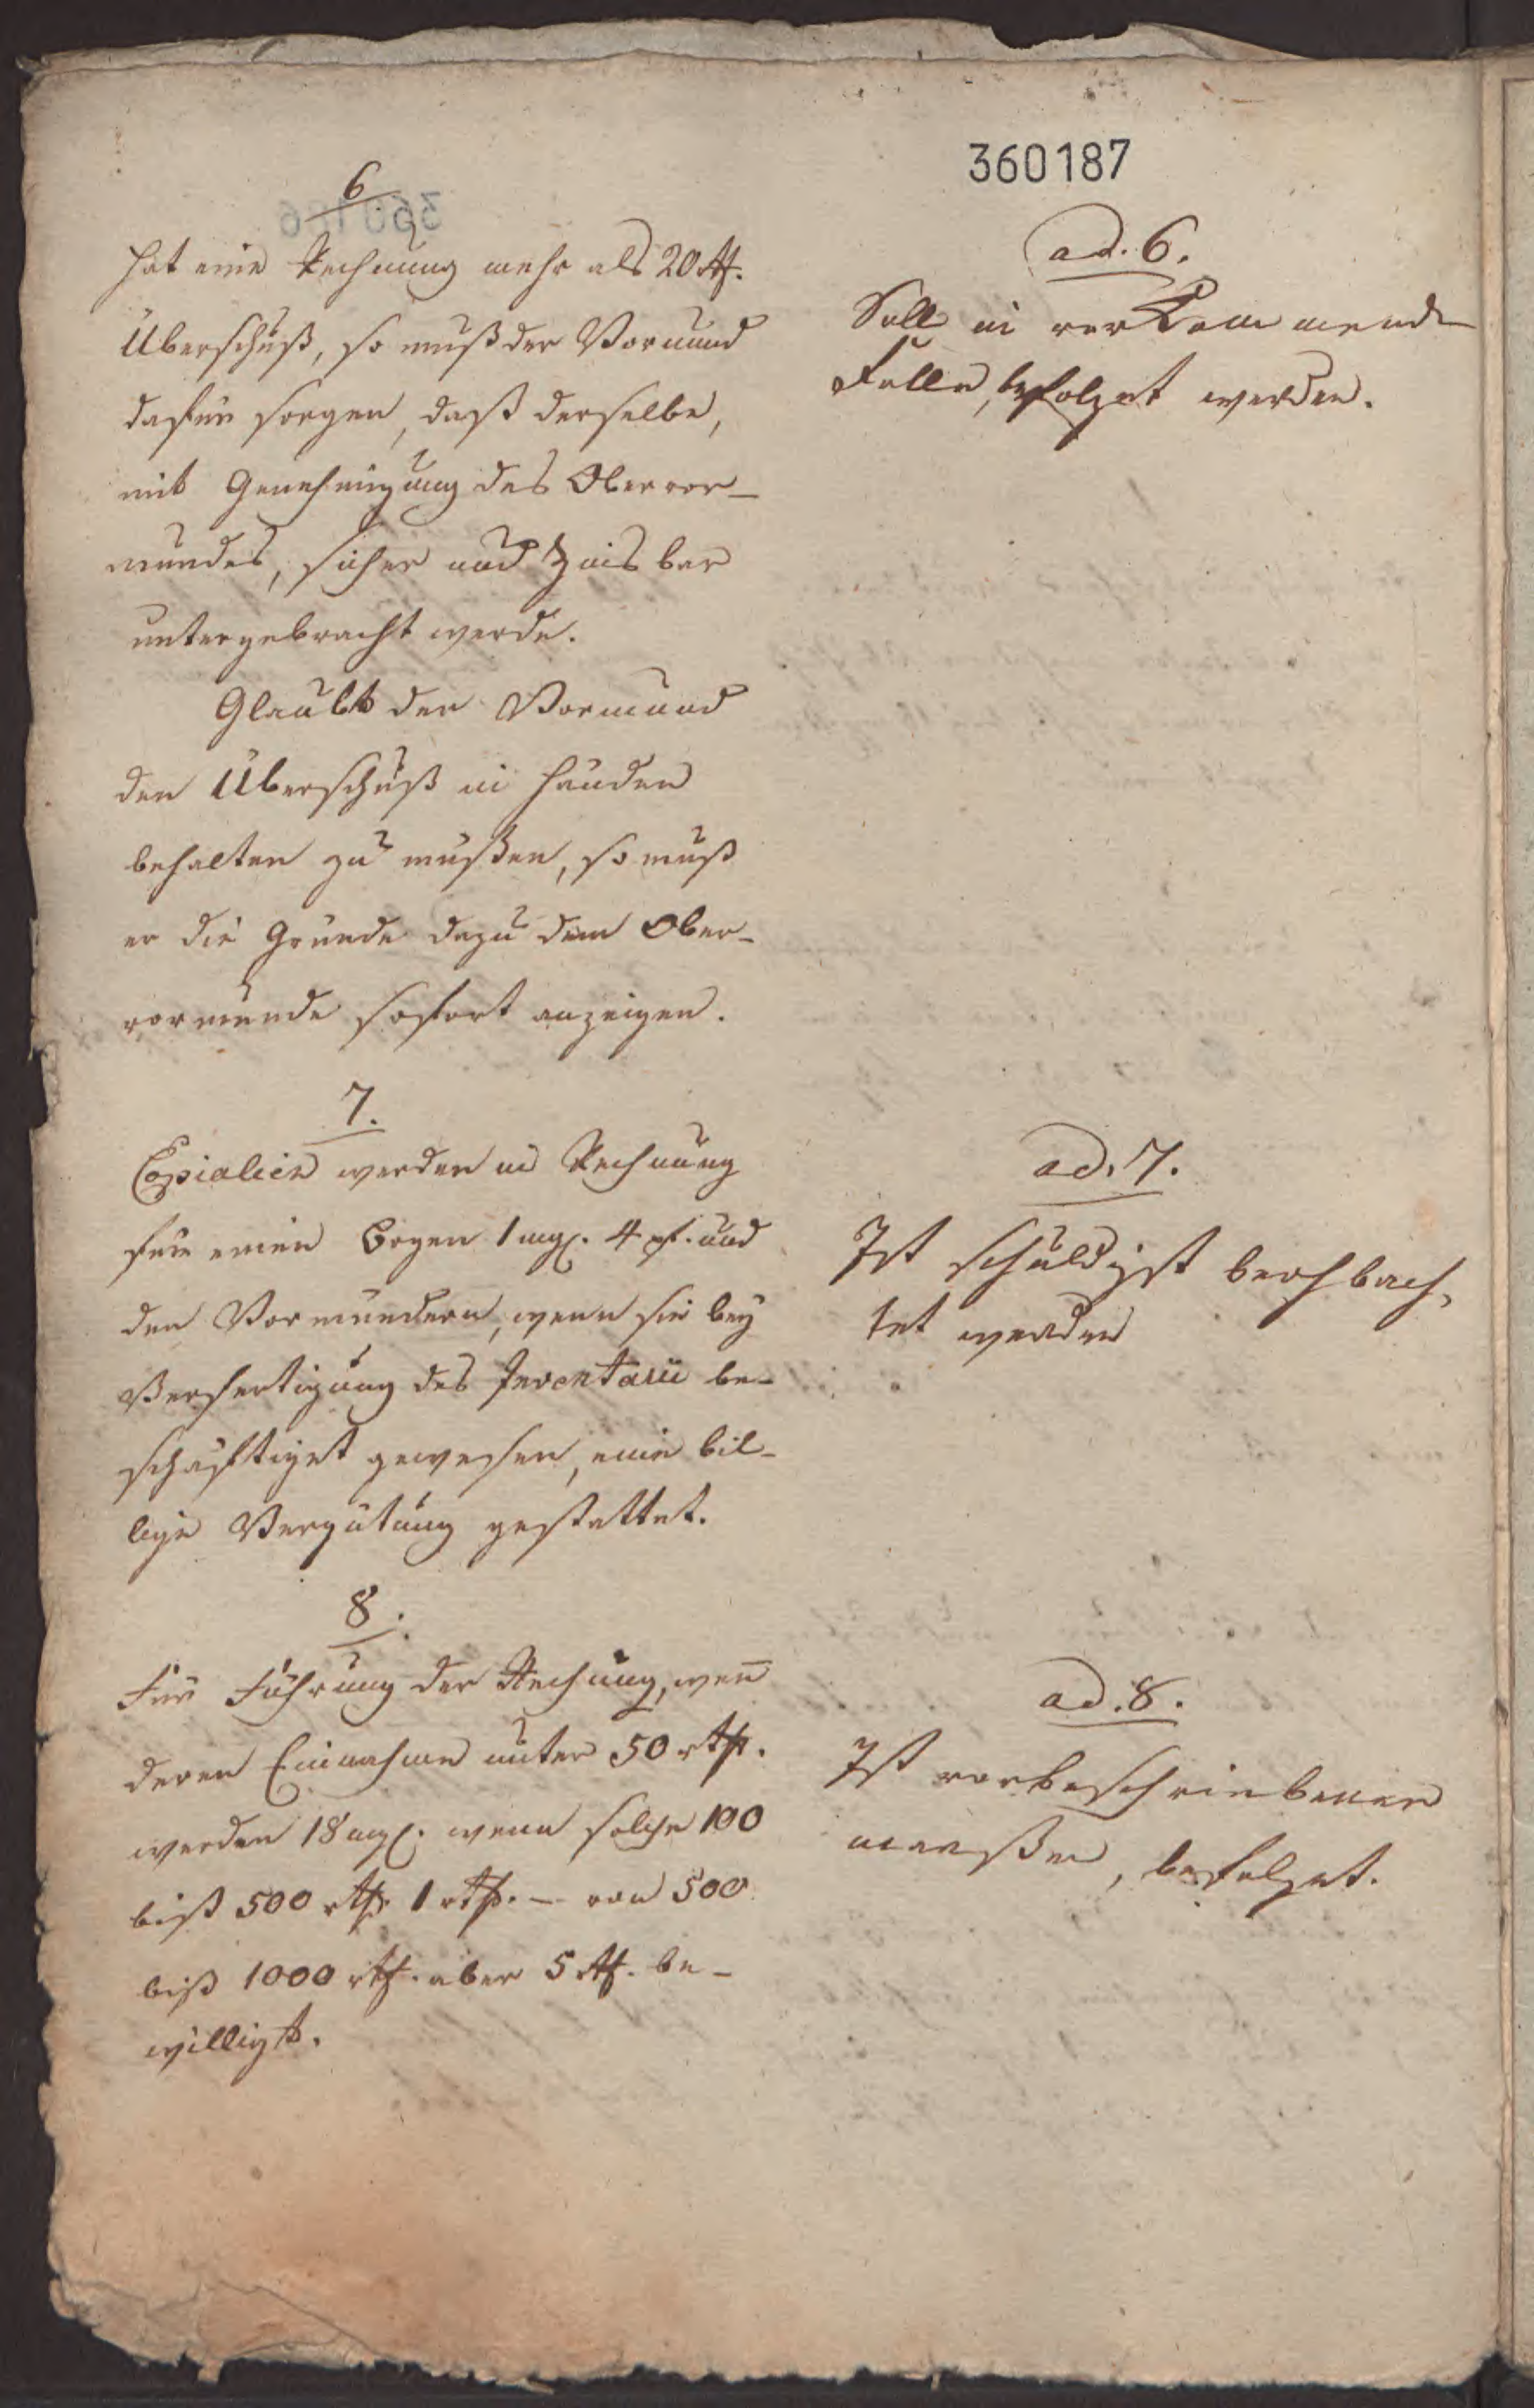 360187
6
hat eine Rechnung mehr als 20 rthl.
Überschuß, so muß der Vormund
dafür sorgen, daß derselbe,
mit Genehmigung des Obervor-
mundes, sicher und Zinsbar
untergebracht werde.
Glaubt der Vormund
den Überschuß in Händen
behalten zu müßen, so muß
er die Gründe dazu dem Ober-
vormunde sofort anzeigen.
7.
Copialien werden in Rechnung
für einen Bogen 1 mgl. 4 pf. und
den Vormündern, wenn sie bey
Verfertigung des Inventarii be-
schäftiget gewesen, eine bil-
lige Vergütung gestattet.
8.
Für Führung der Rechnung, wen̄
deren Einnahme unter 50 rthl.
werden 18 mgl. wenn solche 100
biß 500 rthl. 1 rthl. — von 500
biß 1000 rthl. aber 5 rthl. be-
williget.
ad. 6.
Soll in vorkommende
Falle, befolget werden.
ad. 7.
Ist schuldigst beobach,
tet werden
ad. 8.
Ist vorbeschriebener
maaßen, befolget.